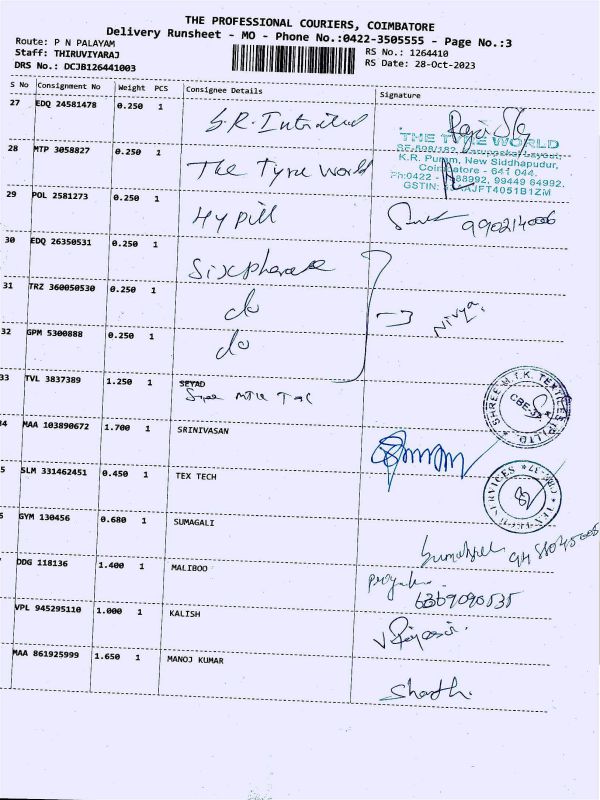 THE PROFESSIONAL COURIERS, COIMBATORE
Delivery Runsheet - MO - Phone No.:0422-3505555 - Page No.:3
Route: P N PALAYAM
Staff: THIRUVIYARAJ
DRS No.: DCJB126441003
RS No.: 1264410
RS Date: 28-Oct-2023
S No Consignment No Weight PCS Consignee Details Signature
27 EDQ 24581478 0.250 1 S.R.
28 MTP 3058827 0.250 1 The Tyre World
THE TYRE WORLD
K.R. Puram, New Siddhapudur,
Coimbatore - 641 044.
99449 64992.
29 POL 2581273 0.250 1 Hy pill 990214006
30 EDQ 26350531 0.250 1
31 TRZ 360050530 0.250 1 do Nivya.
32 GPM 5300888 0.250 1 do
33 TVL 3837389 1.250 1 SEYAD
SHREE M.T.K. TEXTILES (P) LTD CBE-37
34 MAA 103890672 1.700 1 SRINIVASAN
5 SLM 331462451 0.450 1 TEX TECH
6 GYM 130456 0.680 1 SUMAGALI
7 DDG 118136 1.400 1 MALIBOO
6369090535
VPL 945295110 1.000 1 KALISH
MAA 861925999 1.650 1 MANOJ KUMAR
Sharth.